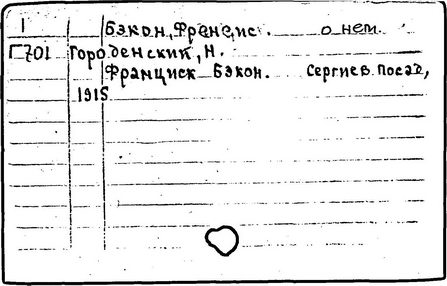 1 Бэкон, Френсис. о нем.
Г701 Городенский, Н.
Франциск Бэкон. Сергиев Посад,
1915